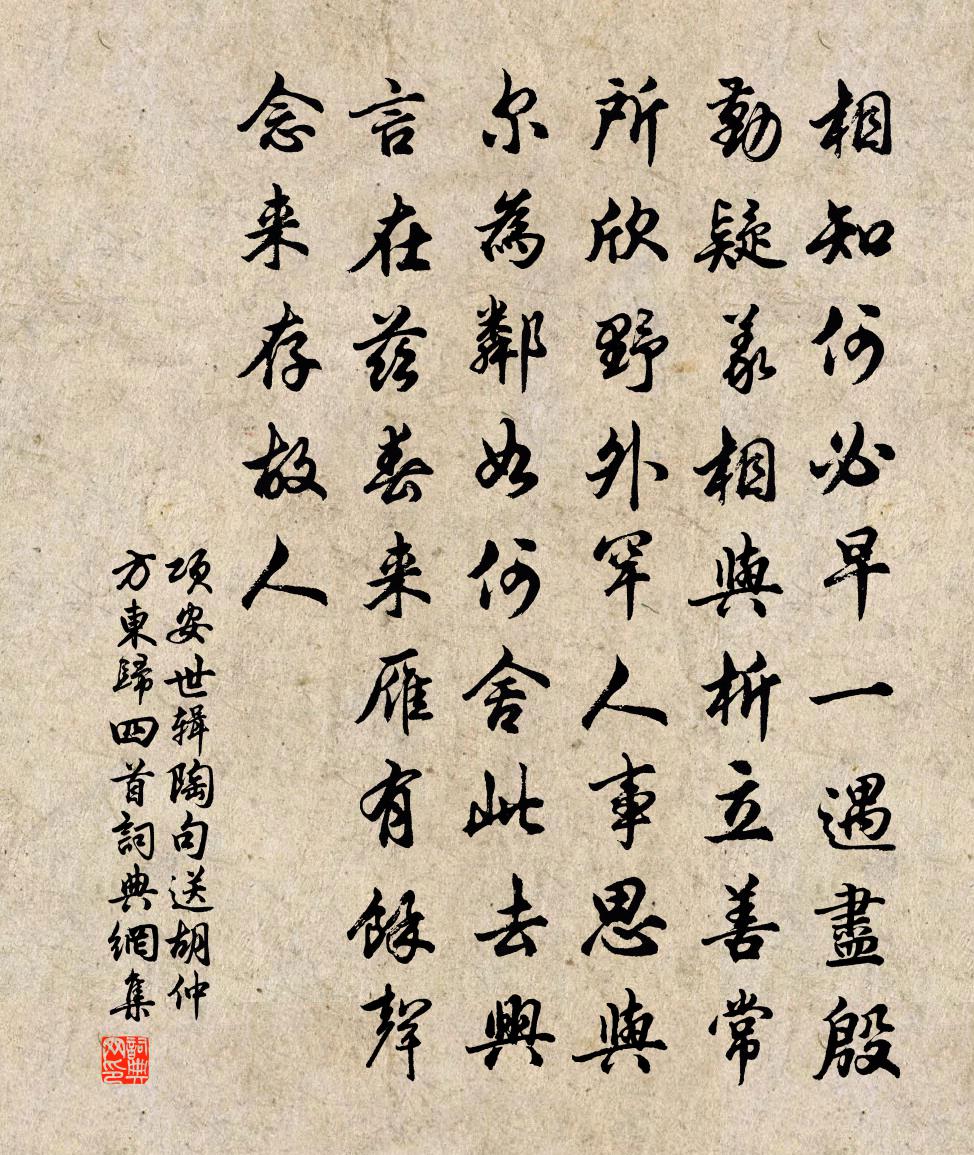 相知何必早一遇盡殷
勤疑義相與析立善常
所欣野外罕人事思與
尔為鄰如何舍此去興
言在茲春来雁有餘聲
念来存故人
项安世辑陶句送胡仲
方東歸四首詞典網集
詞典网印